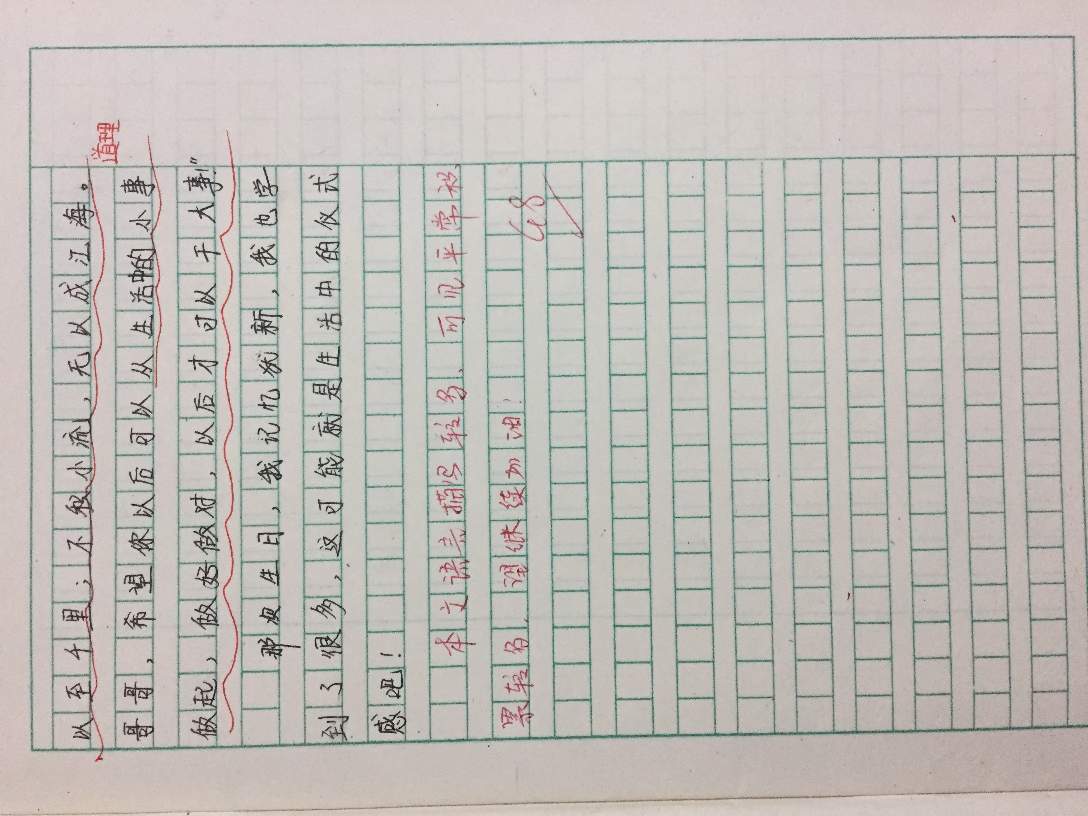 以至千里；不积小流，无以成江海。
道理
哥哥，希望你以后可以从生活中的小事
做起，做好做对，以后才可以干大事！”
那次生日，我记忆犹新，我也学
到了很多，这可能就是生活中的仪式
感吧！
本文语言描写较多，可见平常积
累较多，望继续加油！
48